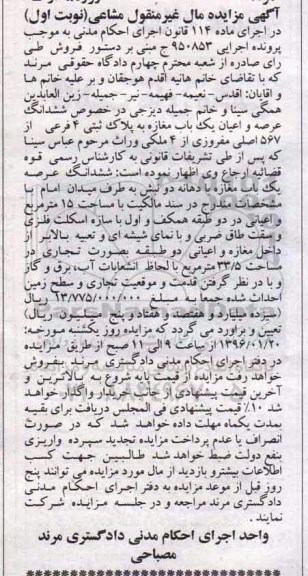 آگهی مزایده مال غیرمنقول مشاعی(نوبت اول)
در اجرای ماده ۱۱۴ قانون اجرای احکام مدنی به موجب
پرونده اجرایی ۹۵۰۸۵۳ ج مبنی بر دستور فروش طی
رای صادره از شعبه محترم چهارم دادگاه حقوقی مرند
که با تقاضای خانم هانیه اقدم هوجقان و بر علیه خانم ها
و اقایان: اقدس-نعیمه-فهیمه-نیر-جمیله-زین العابدین
همگی سینا و خانم جمیله دیزجی در خصوص ششدانگ
عرصه و اعیان یک باب مغازه به پلاک ثبتی ۴ فرعی از
۵۶۷ اصلی مفروزی از ۴ ملکی وراث مرحوم عباس سینا
که پس از طی تشریفات قانونی به کارشناس رسمی قوه
قضائیه ارجاع وی اظهار نموده است: ششدانگ عرصه
یک باب مغازه با دهانه دو نبش به طرف میدان امام با
مشخصات مندرج در سند مالکیت با مساحت ۱۵ مترمربع
و اعیانی در دو طبقه همکف و اول با سازه اسکلت فلزی
و سقف طاق ضربی و با نمای شیشه ای و تعبیه بالابر از
داخل مغازه و اعیانی دو طبقه بصورت تجاری در
مساحت ۳۳/۵ مترمربع با لحاظ انشعابات آب،برق و گاز
و با در نظر گرفتن قدمت و موقعیت تجاری و سطح زمین
احداث شده جمعا به مبلغ ۱۳/۷۷۵/۰۰۰/۰۰۰ ریال
(سیزده میلیارد و هفتصد و هفتاد و پنج میلیون ریال)
تعیین و براورد می گردد که مزایده روز یکشنبه مورخه:
۱۳۹۶/۰۱/۲۰ از ساعت ۹ الی ۱۱ صبح از طریق مزایده
در دفتر اجرای احکام مدنی دادگستری مرند بفروش
خواهد رفت مزایده از قیمت پایه شروع به بالاترین و
آخرین قیمت پیشنهادی از جانب خریدار واگذار خواهد
شد ۱۰٪ قیمت پیشنهادی فی المجلس دریافت برای بقیه
بمدت یکماه مهلت داده خواهد شد که در صورت
انصراف یا عدم پرداخت مزایده تجدید سپرده واریزی
بنفع دولت ضبط خواهد شد طالبین جهت کسب
اطلاعات بیشتر و بازدید از مال مورد مزایده می توانند پنج
روز قبل از موعد مزایده به دفتر اجرای احکام مدنی
دادگستری مرند مراجعه و در جلسه مزایده شرکت
نمایند.
واحد اجرای احکام مدنی دادگستری مرند
مصباحی